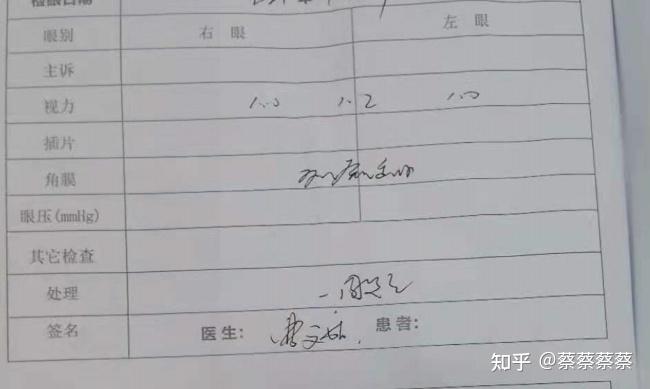 检眼日期
眼别 右 眼 左 眼
主诉
视力 1.0 1.2 1.0
插片
角膜
眼压(mmHg)
其它检查
处理 一周复查
签名 医生: 患者:
知乎 @蔡蔡蔡蔡